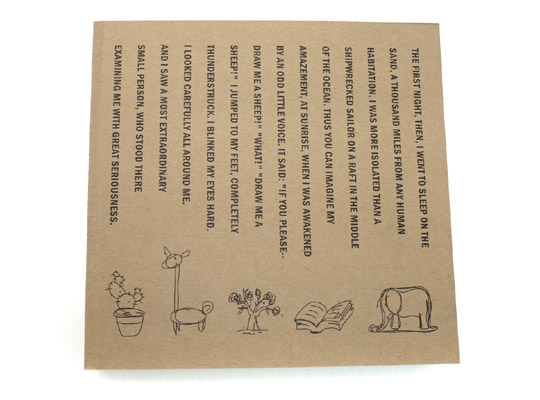 THE FIRST NIGHT, THEN, I WENT TO SLEEP ON THE
SAND, A THOUSAND MILES FROM ANY HUMAN
HABITATION. I WAS MORE ISOLATED THAN A
SHIPWRECKED SAILOR ON A RAFT IN THE MIDDLE
OF THE OCEAN. THUS YOU CAN IMAGINE MY
AMAZEMENT, AT SUNRISE, WHEN I WAS AWAKENED
BY AN ODD LITTLE VOICE. IT SAID: "IF YOU PLEASE--
DRAW ME A SHEEP!" "WHAT!" "DRAW ME A
SHEEP!" I JUMPED TO MY FEET, COMPLETELY
THUNDERSTRUCK. I BLINKED MY EYES HARD.
I LOOKED CAREFULLY ALL AROUND ME.
AND I SAW A MOST EXTRAORDINARY
SMALL PERSON, WHO STOOD THERE
EXAMINING ME WITH GREAT SERIOUSNESS.